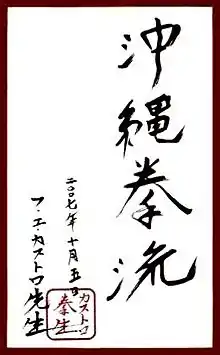 沖縄拳流
二〇〇七年十月五日
フ・エ・カストロ先生
カストロ
拳生